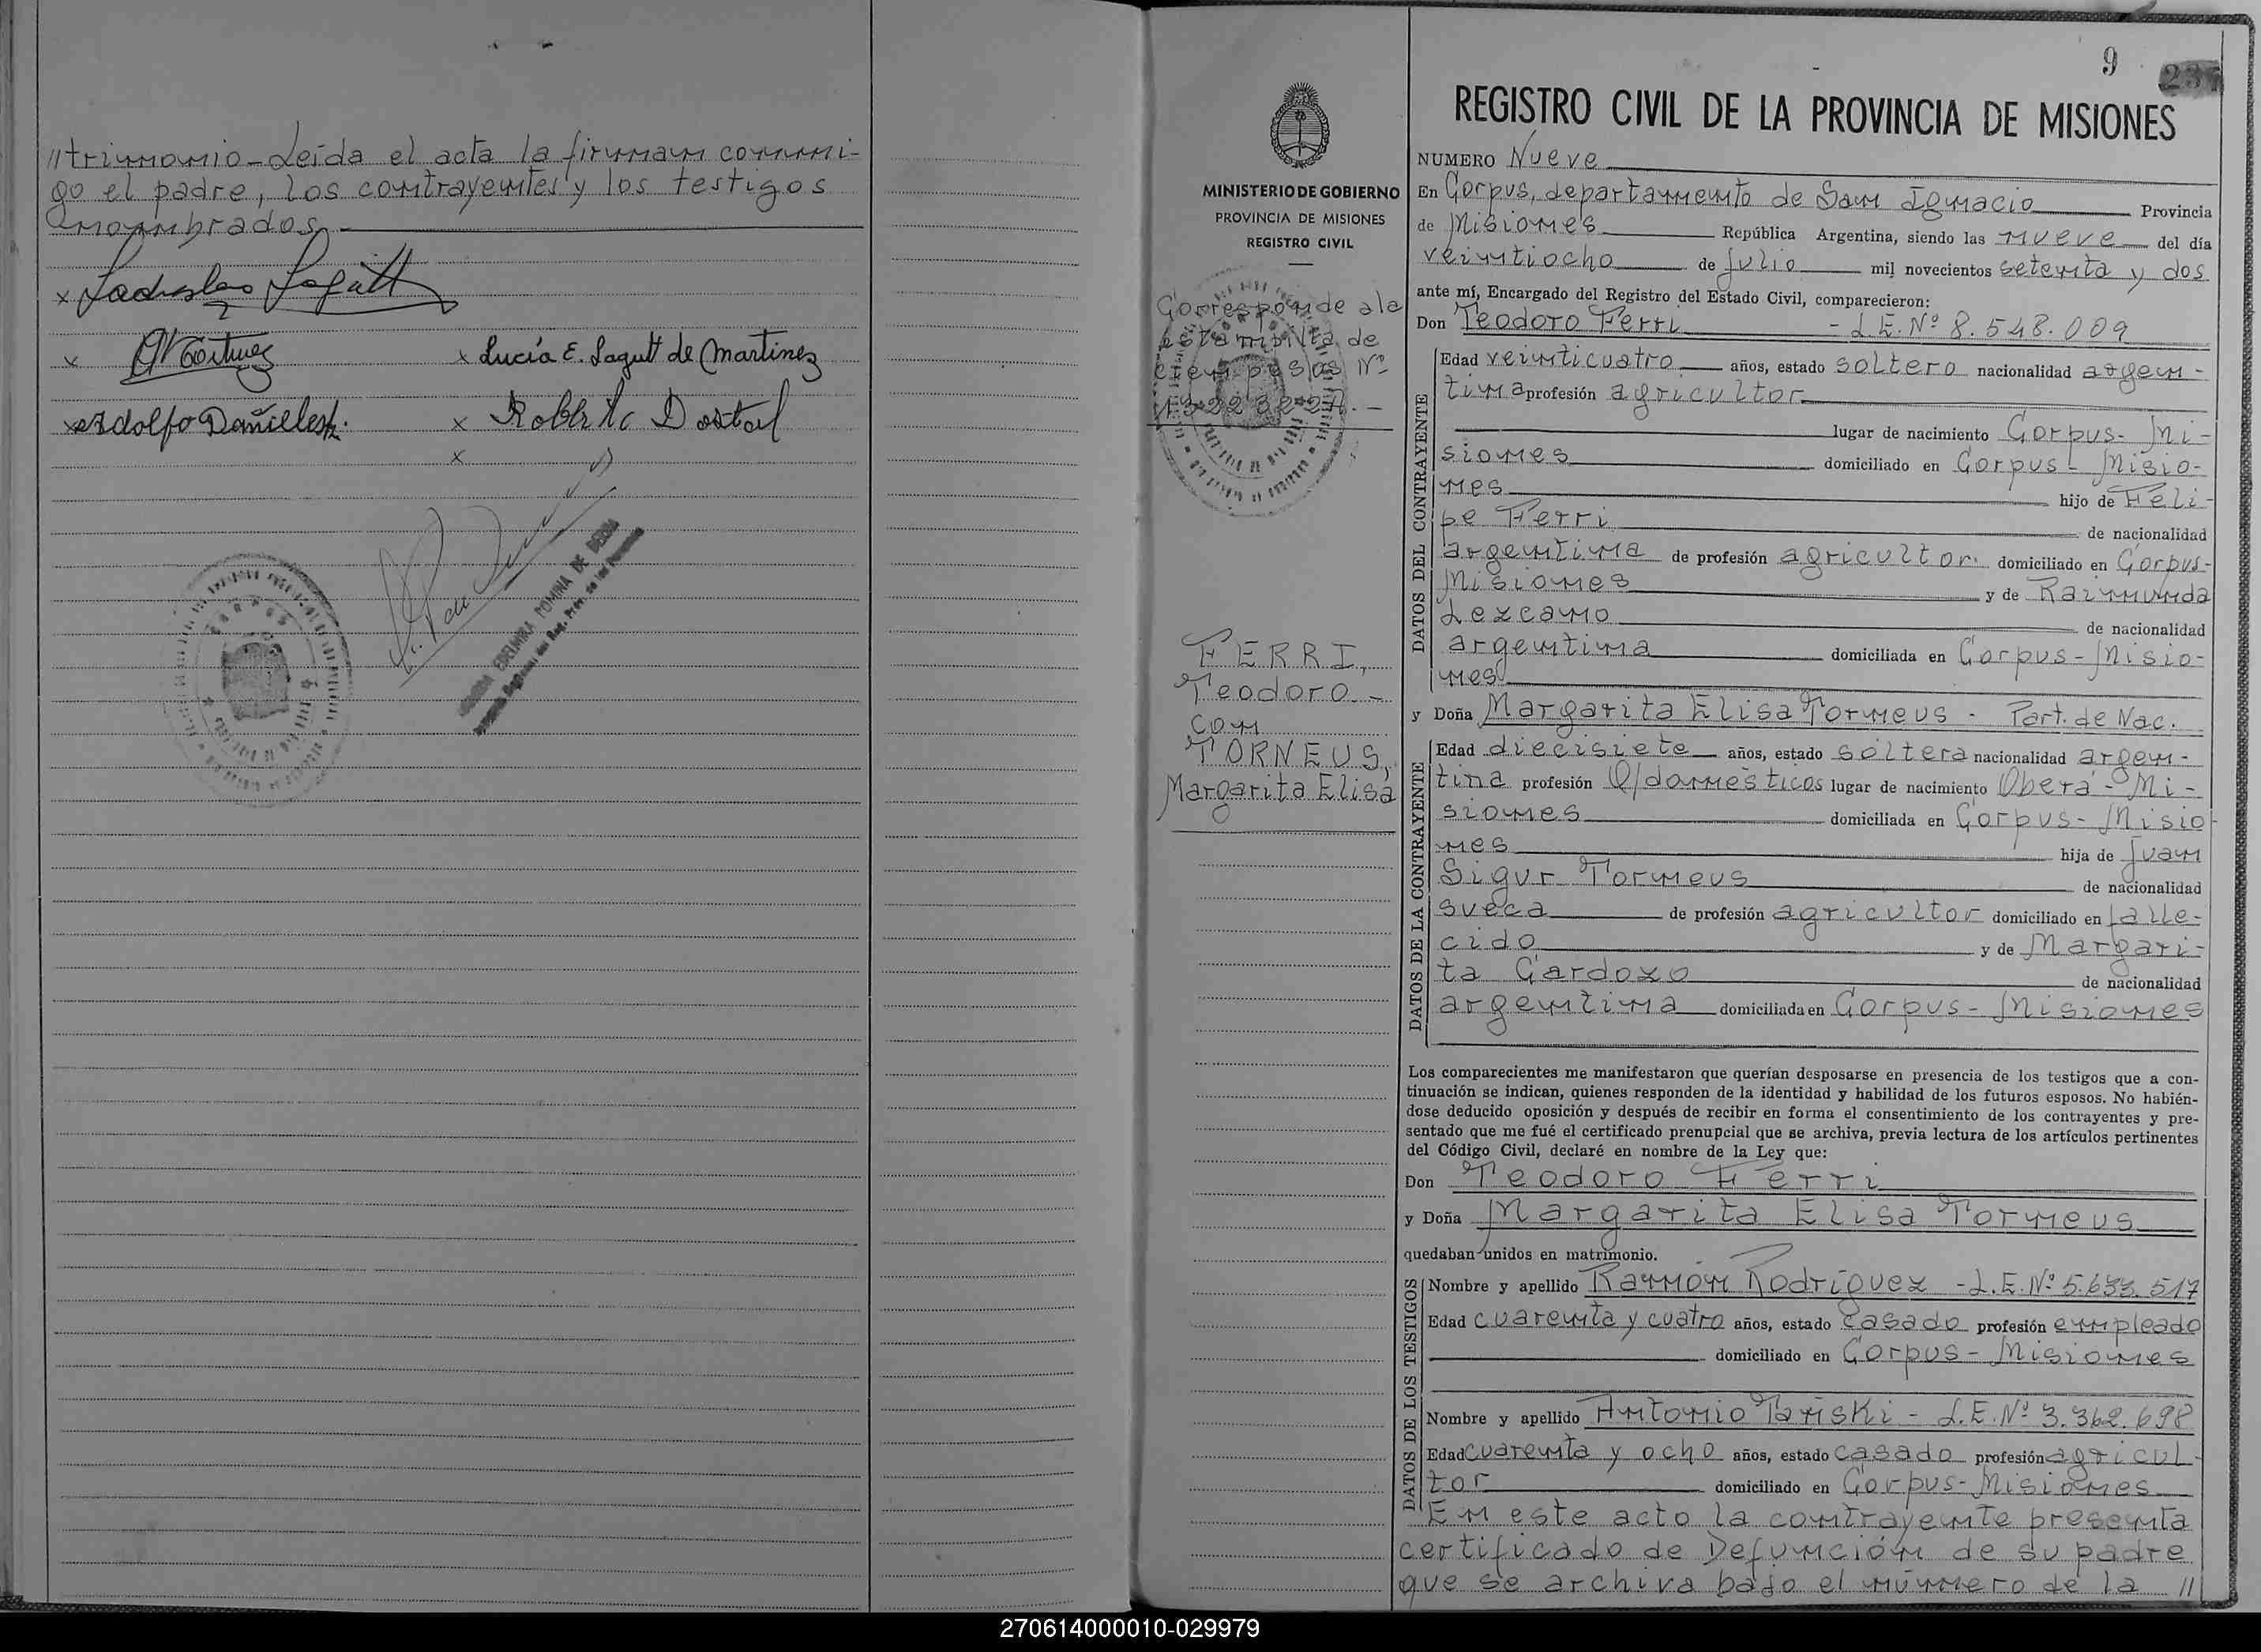 //trimonio-Leída el acta la firman conmi-
go el padre, los contrayentes y los testigos
nombrados.
x Ladislao Sagutt
x x Lucía E. Sagutt de Martinez
x Adolfo x Roberto Dostal
x
ROMINA DE
9
REGISTRO CIVIL DE LA PROVINCIA DE MISIONES
MINISTERIO DE GOBIERNO
PROVINCIA DE MISIONES
REGISTRO CIVIL
Corresponde a la
estampilla de
cien pesos Nº
FERRI,
Teodoro.-
con
TORNEUS,
Margarita Elisa
NUMERO Nueve
En Corpus, departamento de San Ignacio Provincia
de Misiones República Argentina, siendo las nueve del día
veintiocho de julio mil novecientos setenta y dos
ante mí, Encargado del Registro del Estado Civil, comparecieron:
Don Teodoro Ferri - L.E.Nº 8.548.009
DATOS DEL CONTRAYENTE
Edad veinticuatro años, estado soltero nacionalidad argen-
tina profesión agricultor
lugar de nacimiento Corpus- Mi-
siones domiciliado en Corpus- Misio-
nes hijo de Feli-
pe Ferri de nacionalidad
argentina de profesión agricultor domiciliado en Corpus-
Misiones y de Raimunda
Lezcano de nacionalidad
argentina domiciliada en Corpus-Misio-
nes
y Doña Margarita Elisa Torneus - Part. de Nac.
DATOS DE LA CONTRAYENTE
Edad diecisiete años, estado soltera nacionalidad argen-
tina profesión Q/domésticos lugar de nacimiento Oberá-Mi-
siones domiciliada en Corpus-Misio-
nes hija de Juan
Sigur Torneus de nacionalidad
sueca de profesión agricultor domiciliado en falle-
cido y de Margari-
ta Cardozo de nacionalidad
argentina domiciliada en Corpus-Misiones
Los comparecientes me manifestaron que querían desposarse en presencia de los testigos que a con-
tinuación se indican, quienes responden de la identidad y habilidad de los futuros esposos. No habién-
dose deducido oposición y después de recibir en forma el consentimiento de los contrayentes y pre-
sentado que me fué el certificado prenupcial que se archiva, previa lectura de los artículos pertinentes
del Código Civil, declaré en nombre de la Ley que:
Don Teodoro Ferri
y Doña Margarita Elisa Torneus
quedaban unidos en matrimonio.
DATOS DE LOS TESTIGOS
Nombre y apellido Ramón Rodríguez -L.E.Nº 5.633.517
Edad cuarenta y cuatro años, estado casado profesión empleado
domiciliado en Corpus-Misiones
Nombre y apellido Antonio Panski - L.E.Nº 3.362.698
Edad cuarenta y ocho años, estado casado profesión agricul-
tor domiciliado en Corpus-Misiones
En este acto la contrayente presenta
certificado de Defunción de su padre
que se archiva bajo el número de la //
270614000010-029979